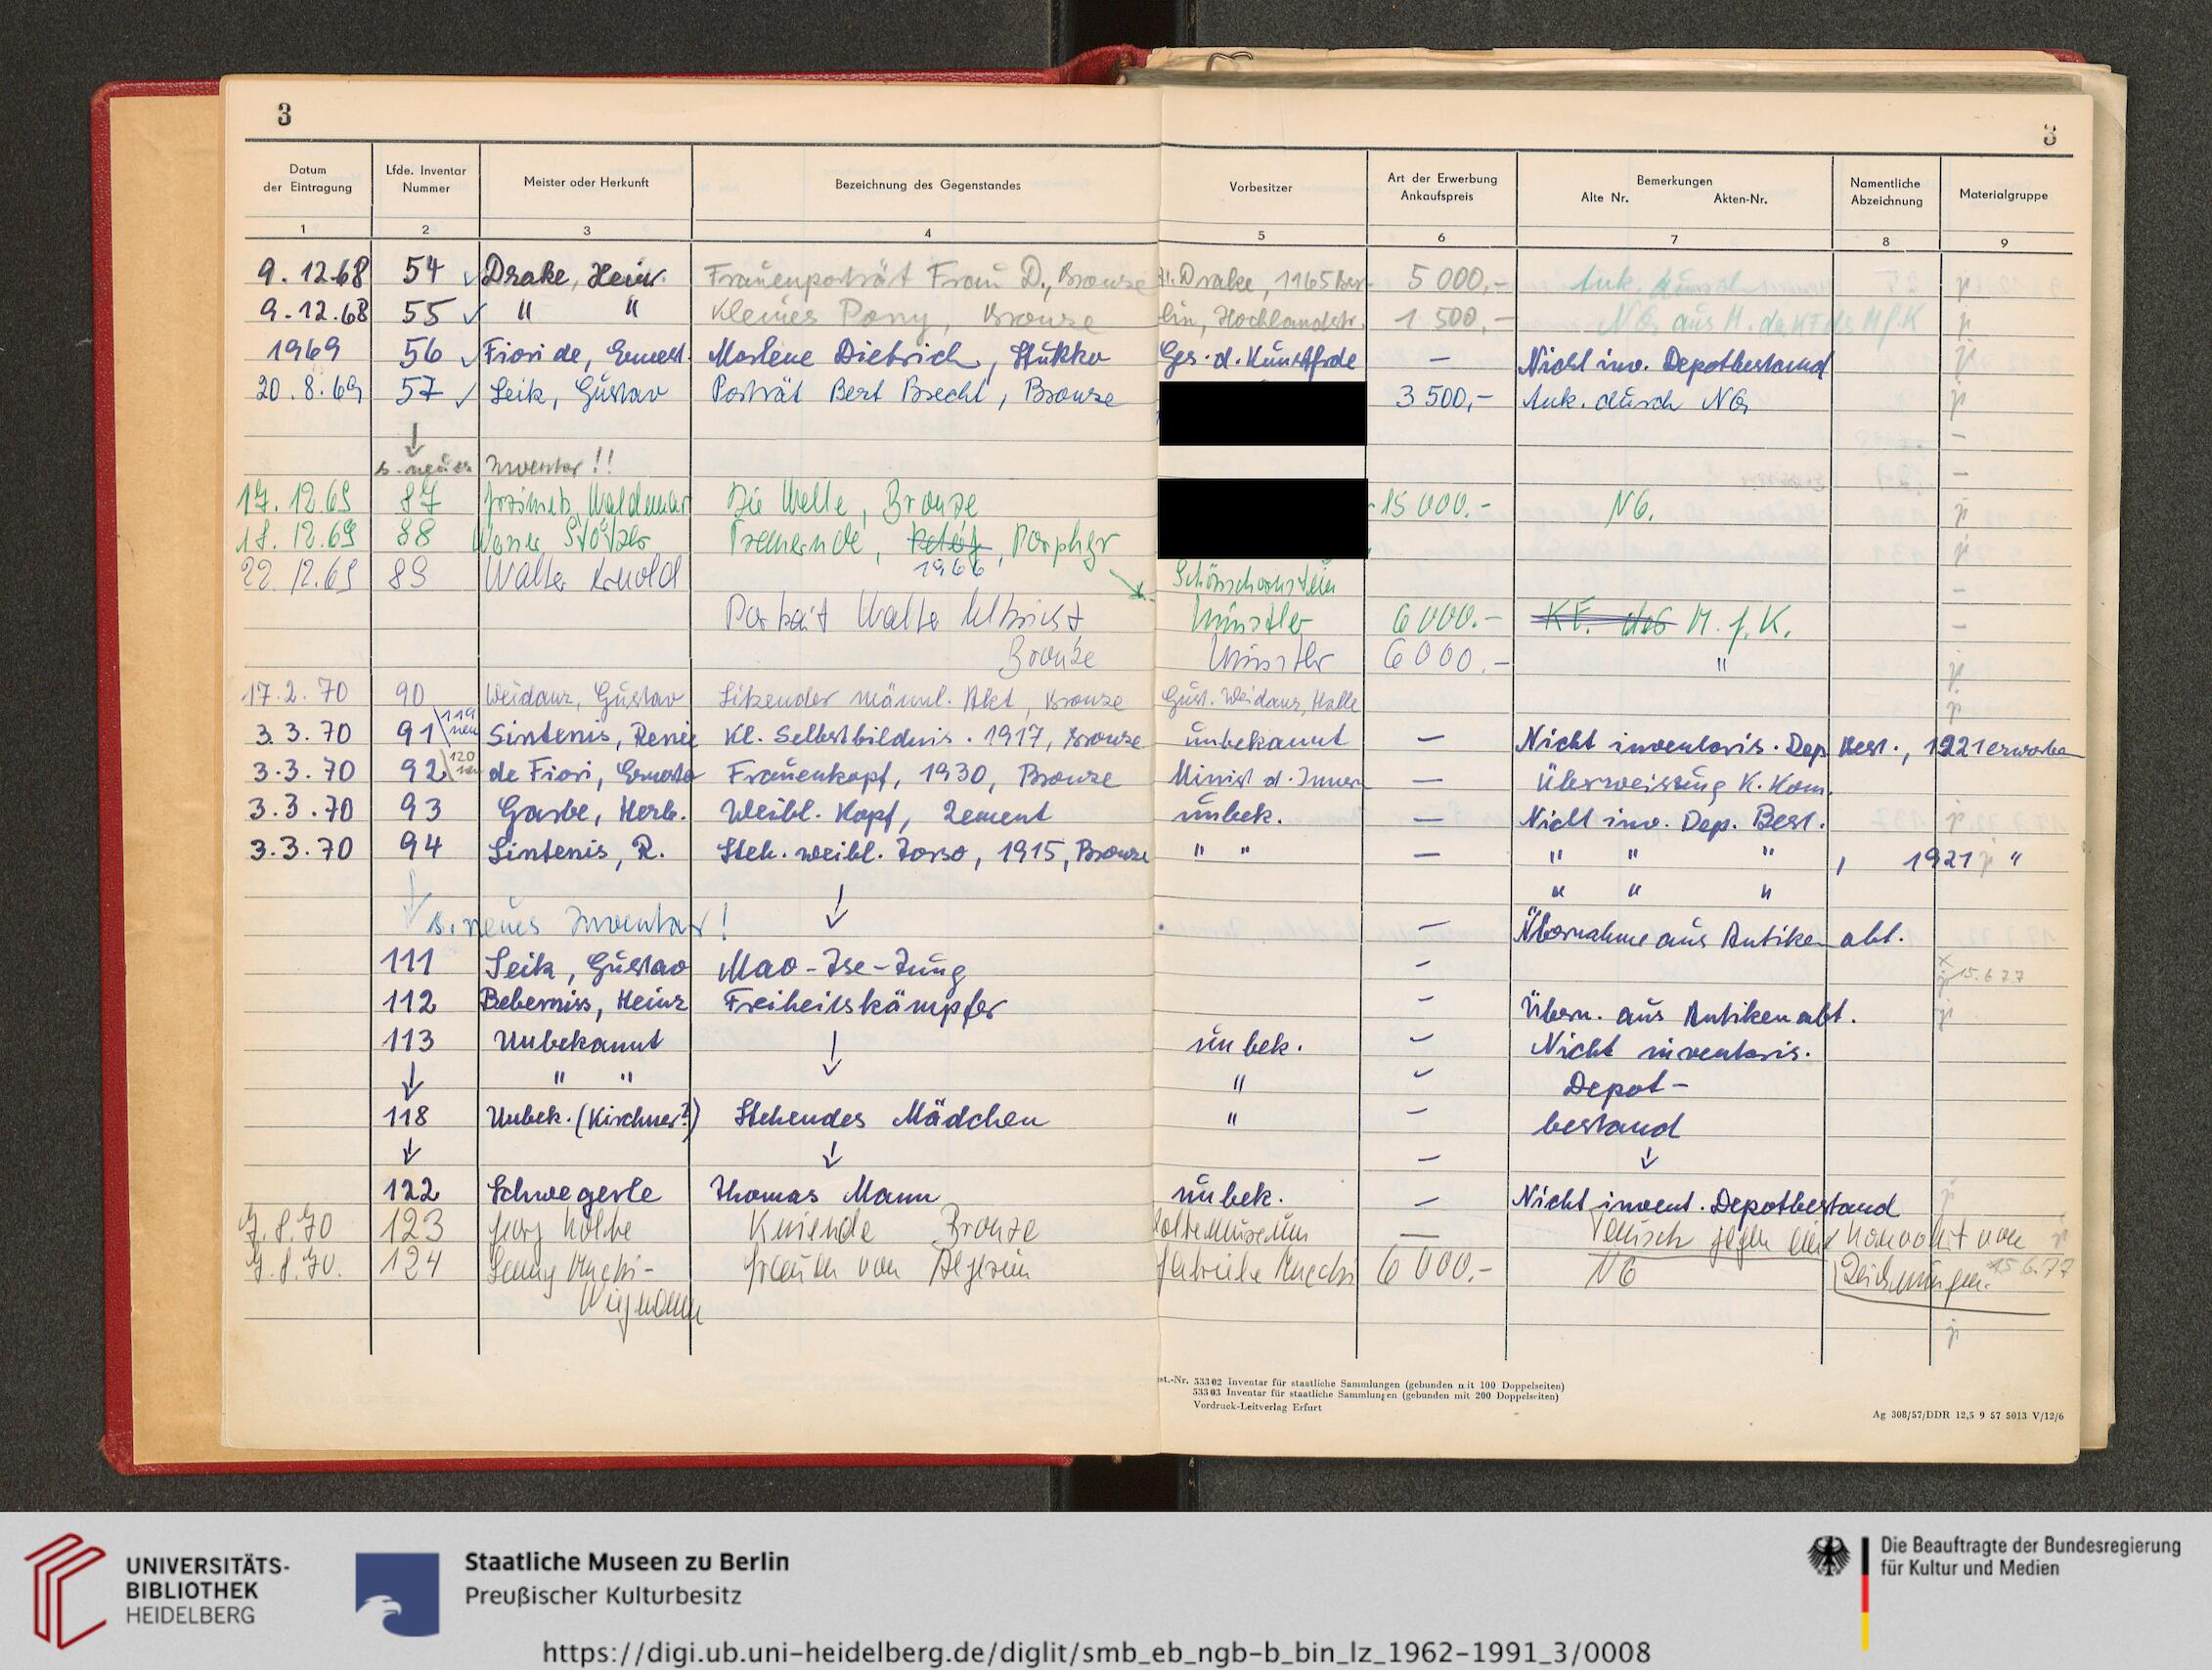 3 3
Datum der Eintragung Lfde. Inventar Nummer Meister oder Herkunft Bezeichnung des Gegenstandes Vorbesitzer Art der Erwerbung Ankaufspreis Bemerkungen Alte Nr. Akten-Nr. Namentliche Abzeichnung Materialgruppe
1 2 3 4 5 6 7 8 9
9.12.68 54 Drake, Heinr. Frauenporträt Frau D., Bronze H. Drake, 1165 Ber- 5 000,- Ank. durch
9.12.68 55 " " Kleines Pony, Bronze lin, Hochlandstr. 1 500,- NG aus M. d. KF des M.f.K
1969 56 Fiori de, Ernest. Marlene Dietrich, Stukko Ges. d. Kunstfrde — Nicht inv. Depotbestand
20.8.69 57 Seitz, Gustav Porträt Bert Brecht, Bronze 3 500,- Ank. durch NG
↓
s. neues Inventar!!
17.12.69 87 Grzimek, Waldemar Die Welle, Bronze 15 000.- NG.
18.12.69 88 Werner Stötzer Porphyr
1966
22.12.69 89 Walter Arnold
Künstler 6 000.- M.f.K.
Portrait Walter Ulbricht
Bronze Künstler 6 000.- "
17.2.70 90 Weidanz, Gustav Sitzender männl. Akt, Bronze Gust. Weidanz, Halle
3.3.70 91 119 neu Sintenis, Renée Kl. Selbstbildnis. 1917, Bronze unbekannt — Nicht inventaris. Dep. Best., 1921 erworben
3.3.70 92 120 neu de Fiori, Ernesto Frauenkopf, 1930, Bronze Minist d. Innern — Überweisung K. Kom.
3.3.70 93 Garbe, Herb. Weibl. Kopf, Zement unbek. — Nicht inv. Dep. Best.
3.3.70 94 Sintenis, R. Steh. weibl. Torso, 1915, Bronze " " — " " " , 1921 "
↓ " " "
s. neues Inventar! ↓ — Übernahme aus Antiken abt.
111 Seitz, Gustav Mao-Tse-Tung - 15.6.77
112 Beberniss, Heinz Freiheitskämpfer - Übern. aus Antikenabt.
113 Unbekannt ↓ unbek. - Nicht inventaris.
↓ " " " - Depot-
118 Unbek. (Kirchner?) Stehendes Mädchen " - bestand
↓ ↓ - ↓
122 Schwegerle Thomas Mann unbek. - Nicht invent. Depotbestand
7.8.70 123 Georg Kolbe Kniende Bronze Kolbemuseum — Tausch gegen ein Konvolut von
7.8.70. 124 Frauen von Algerien 6 000.- NG Zeichnungen. 15.6.77
Wiegmann
st.-Nr. 53302 Inventar für staatliche Sammlungen (gebunden mit 100 Doppelseiten)
53303 Inventar für staatliche Sammlungen (gebunden mit 200 Doppelseiten)
Vordruck-Leitverlag Erfurt
Ag 308/57/DDR 12,5 9 57 5013 V/12/6
UNIVERSITÄTS-
BIBLIOTHEK
HEIDELBERG
Staatliche Museen zu Berlin
Preußischer Kulturbesitz
Die Beauftragte der Bundesregierung
für Kultur und Medien
https://digi.ub.uni-heidelberg.de/diglit/smb_eb_ngb-b_bin_lz_1962-1991_3/0008